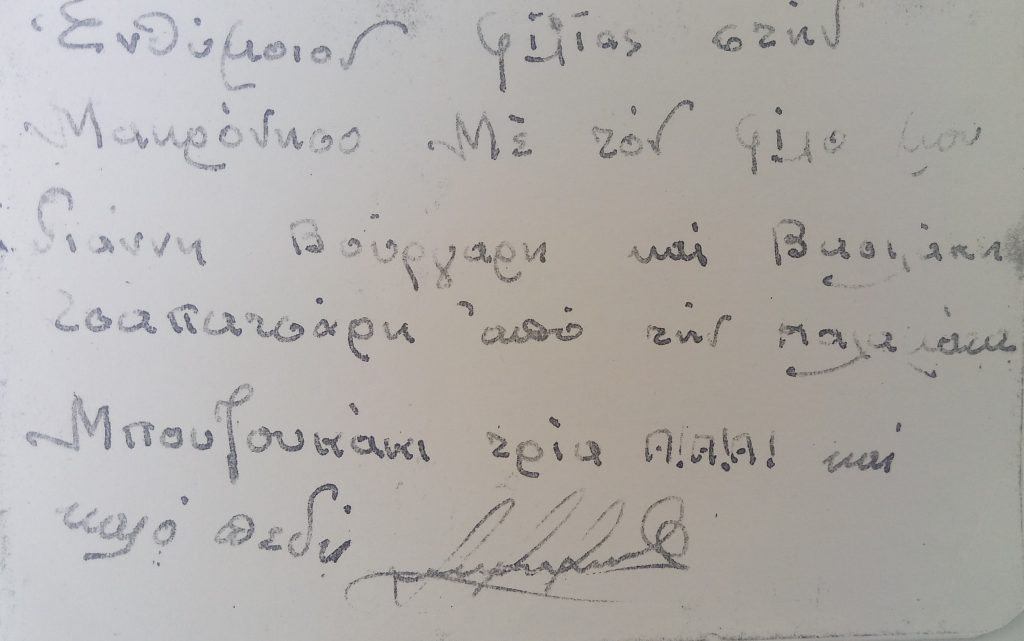 Ἐνθύμοιον φιλίας στὴν
Μακρόνησο Μὲ τόν φίλο μου
Γιάννη Βούργαρη καί Βασιλάκη
τσαπατσάρη ἀπό τὴν
Μπουζουκάκι τρία Α!Α!Α! καί
καλό πεδή